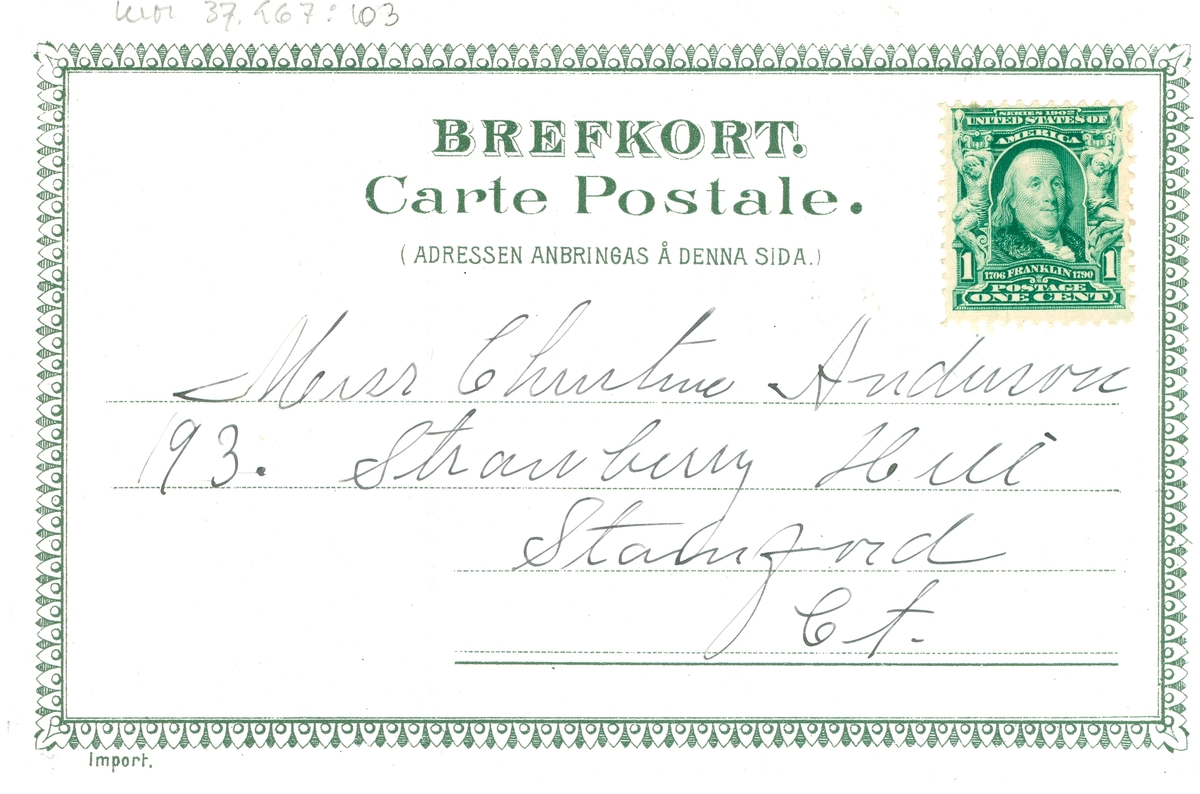 37.267:103
BREFKORT.
Carte Postale.
(ADRESSEN ANBRINGAS Å DENNA SIDA.)
SERIES 1902
UNITED STATES OF
AMERICA
1 1706 FRANKLIN 1790 1
POSTAGE
ONE CENT
Miss Christine Anderson
193. Strawberry Hill
Stamford
Ct.
Import.